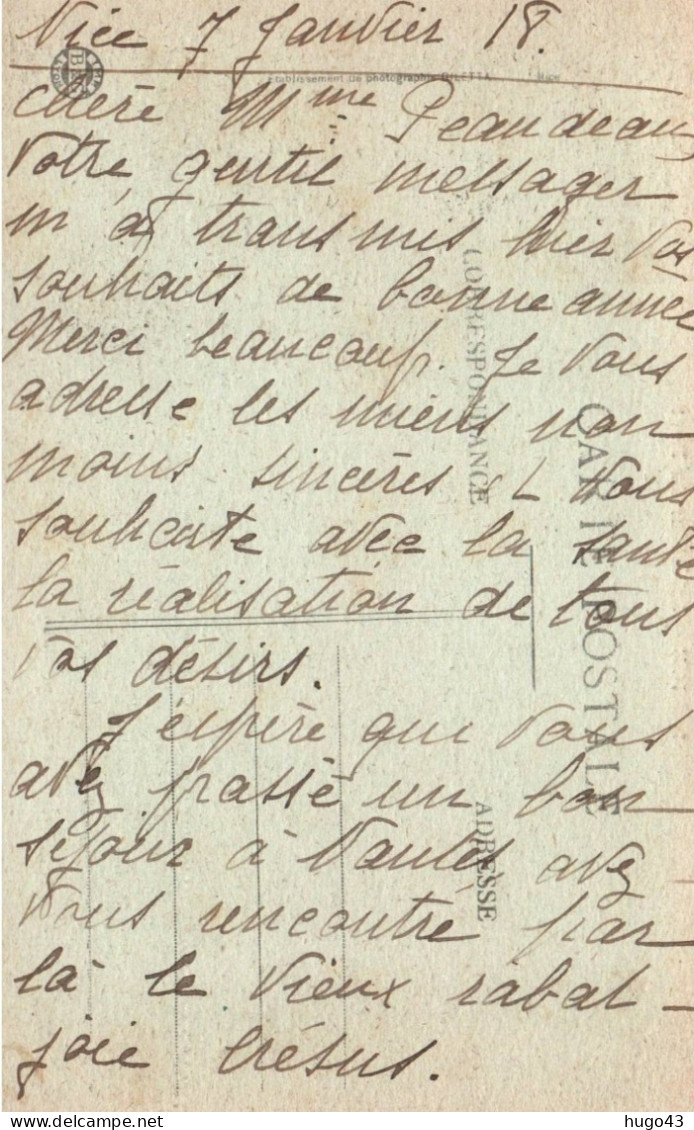 Nice 7 Janvier 18.
Etablissement de photographie GILETTA Nice
chère Mme Peaudeau,
Votre gentil messager
m'a transmis hier vos
souhaits de bonne année
Merci beaucoup. Je vous
adresse les miens non
moins sincères & vous
souhaite avec la santé
la réalisation de tous
vos désirs.
J'espère que vous
avez passé un bon
séjour à Nantes avez
vous rencontré par
là le vieux rabat-
joie Crésus.
CORRESPONDANCE
CARTE POSTALE
ADRESSE
hugo43